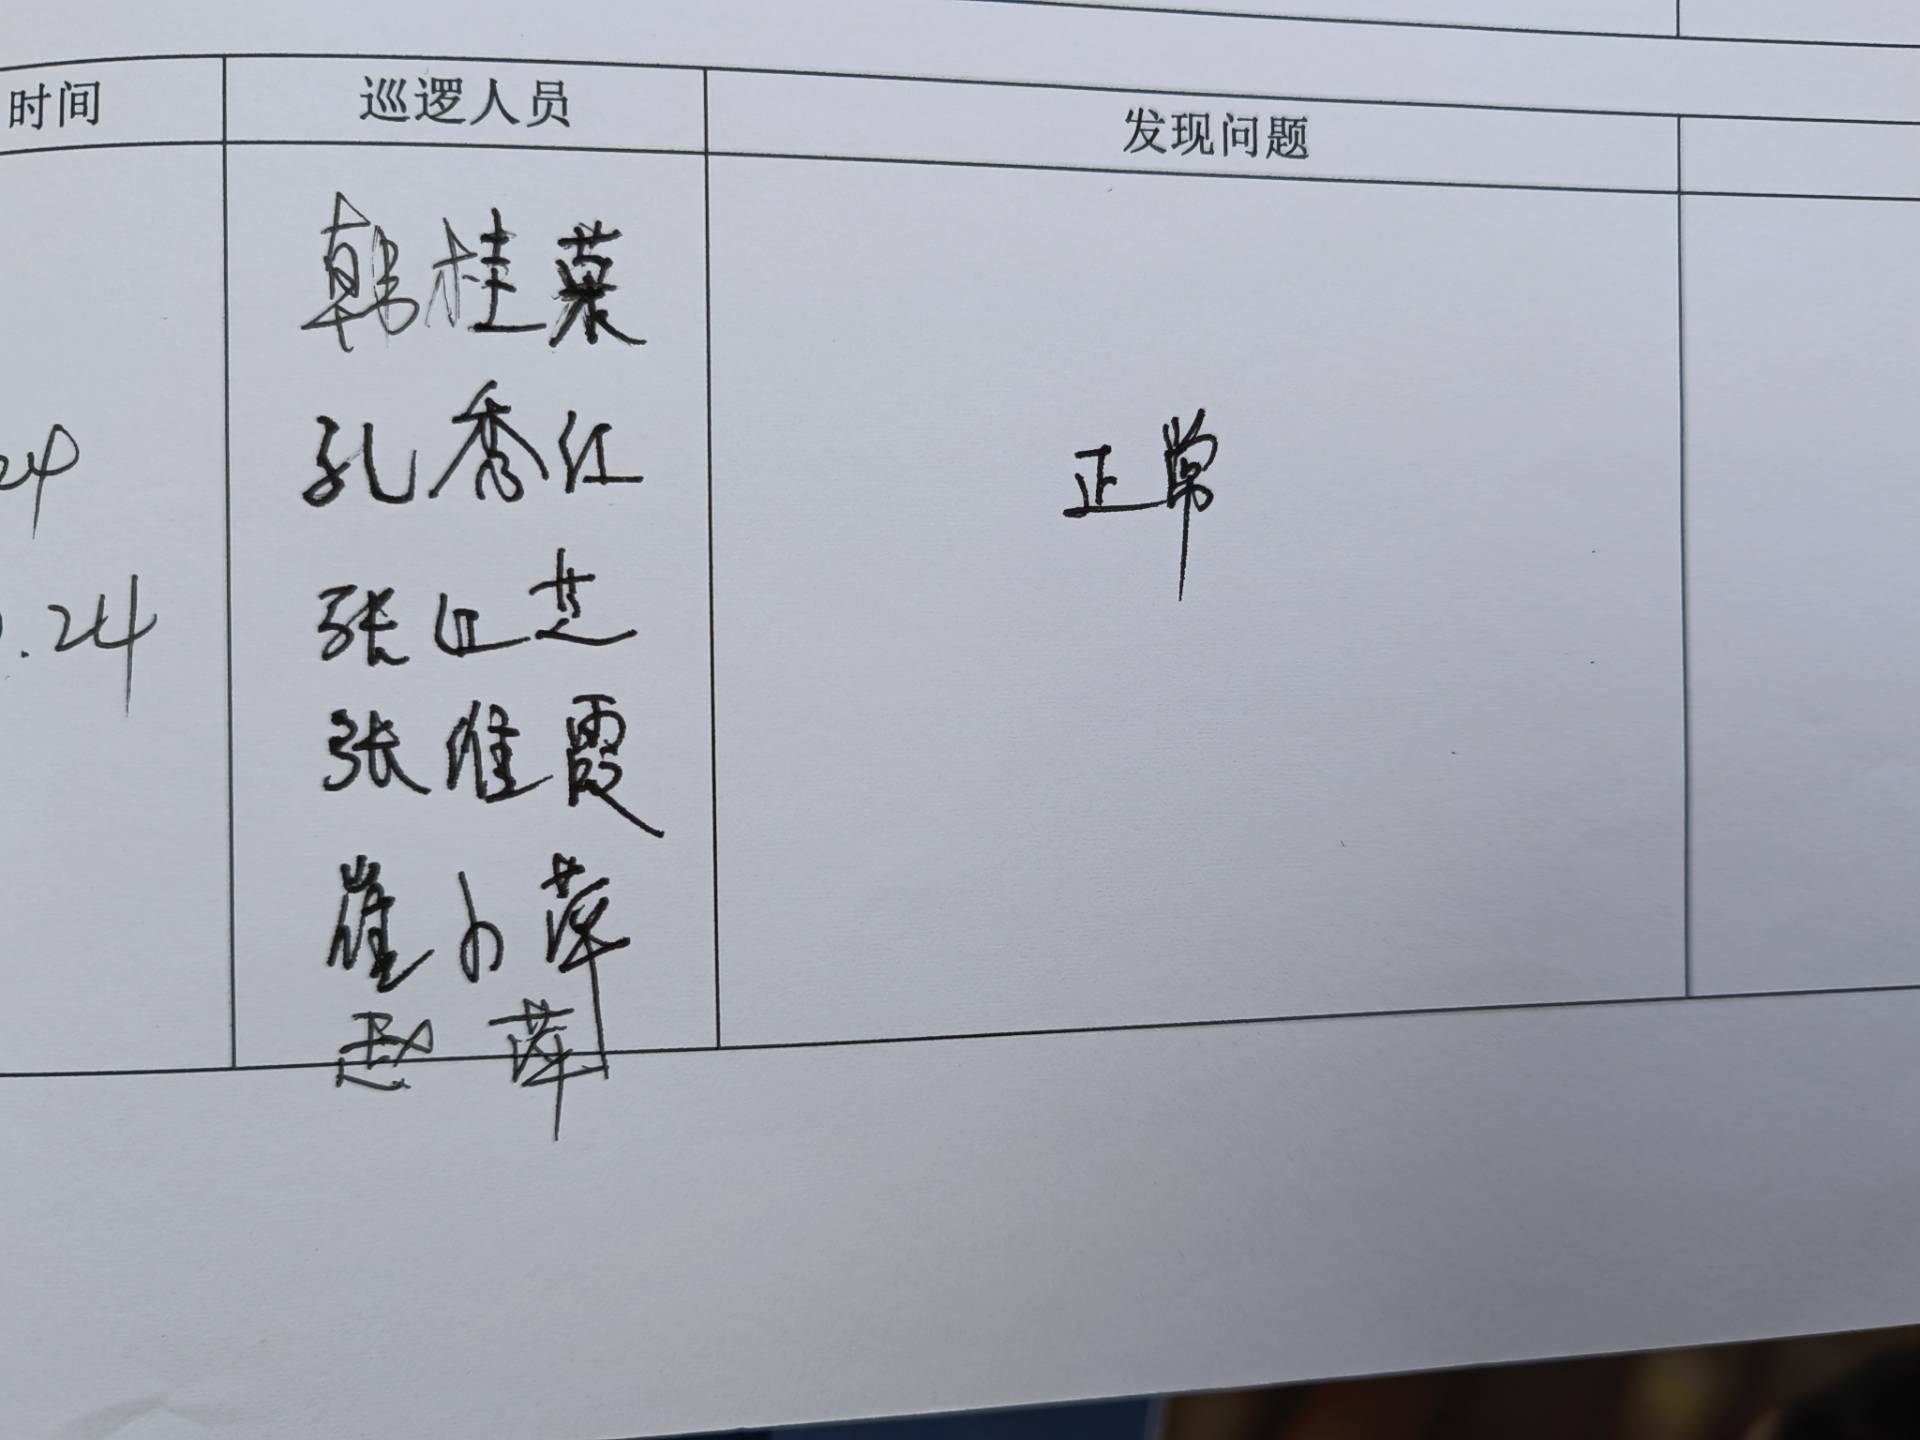 时间 巡逻人员 发现问题
韩桂菜
孔秀红 正常
24
张 芝
.24
张维霞
崔小萍
赵萍